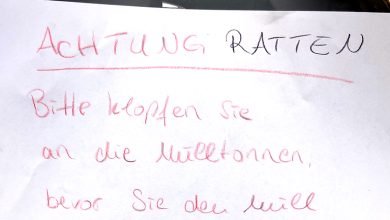 ACHTUNG RATTEN
Bitte klopfen Sie
an die Mülltonnen,
bevor Sie den Müll